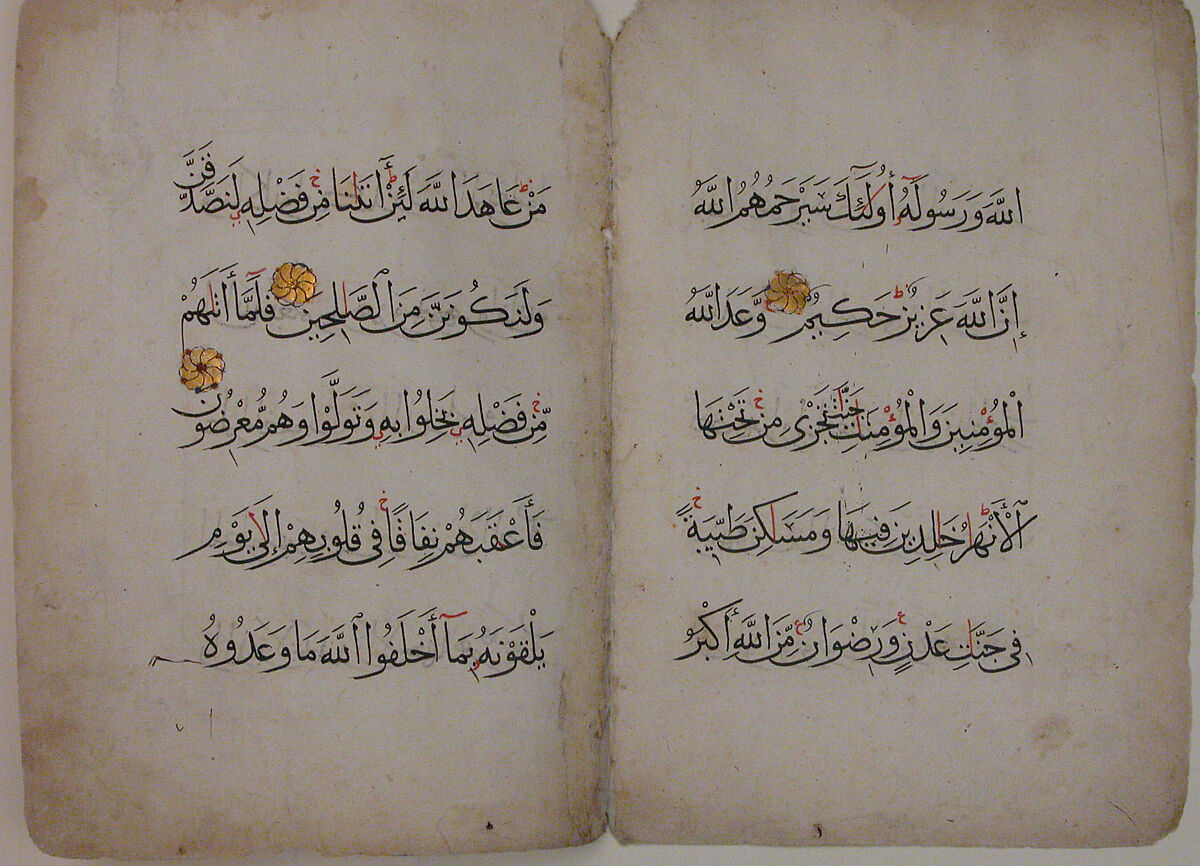 اللَّهَ وَرَسُولَهُ أُولَٰئِكَ سَيَرْحَمُهُمُ اللَّهُ
إِنَّ اللَّهَ عَزِيزٌ حَكِيمٌ وَّعَدَ اللَّهُ
الْمُؤْمِنِينَ وَالْمُؤْمِنَاتِ جَنَّاتٍ تَجْرِى مِنْ تَحْتِهَا
الْأَنْهَارُ خَالِدِينَ فِيهَا وَمَسَاكِنَ طَيِّبَةً
فِى جَنَّاتِ عَدْنٍ وَرِضْوَانٌ مِّنَ اللَّهِ أَكْبَرُ
مَنْ عَاهَدَ اللَّهَ لَئِنْ آتَىٰنَا مِنْ فَضْلِهِ لَنَصَّدَّقَنَّ
وَلَنَكُونَنَّ مِنَ الصَّالِحِينَ فَلَمَّا آتَىٰهُمْ
مِّنْ فَضْلِهِ بَخِلُوا بِهِ وَتَوَلَّوْا وَهُمْ مُّعْرِضُونَ
فَأَعْقَبَهُمْ نِفَاقًا فِى قُلُوبِهِمْ إِلَىٰ يَوْمِ
يَلْقَوْنَهُ بِمَا أَخْلَفُوا اللَّهَ مَا وَعَدُوهُ